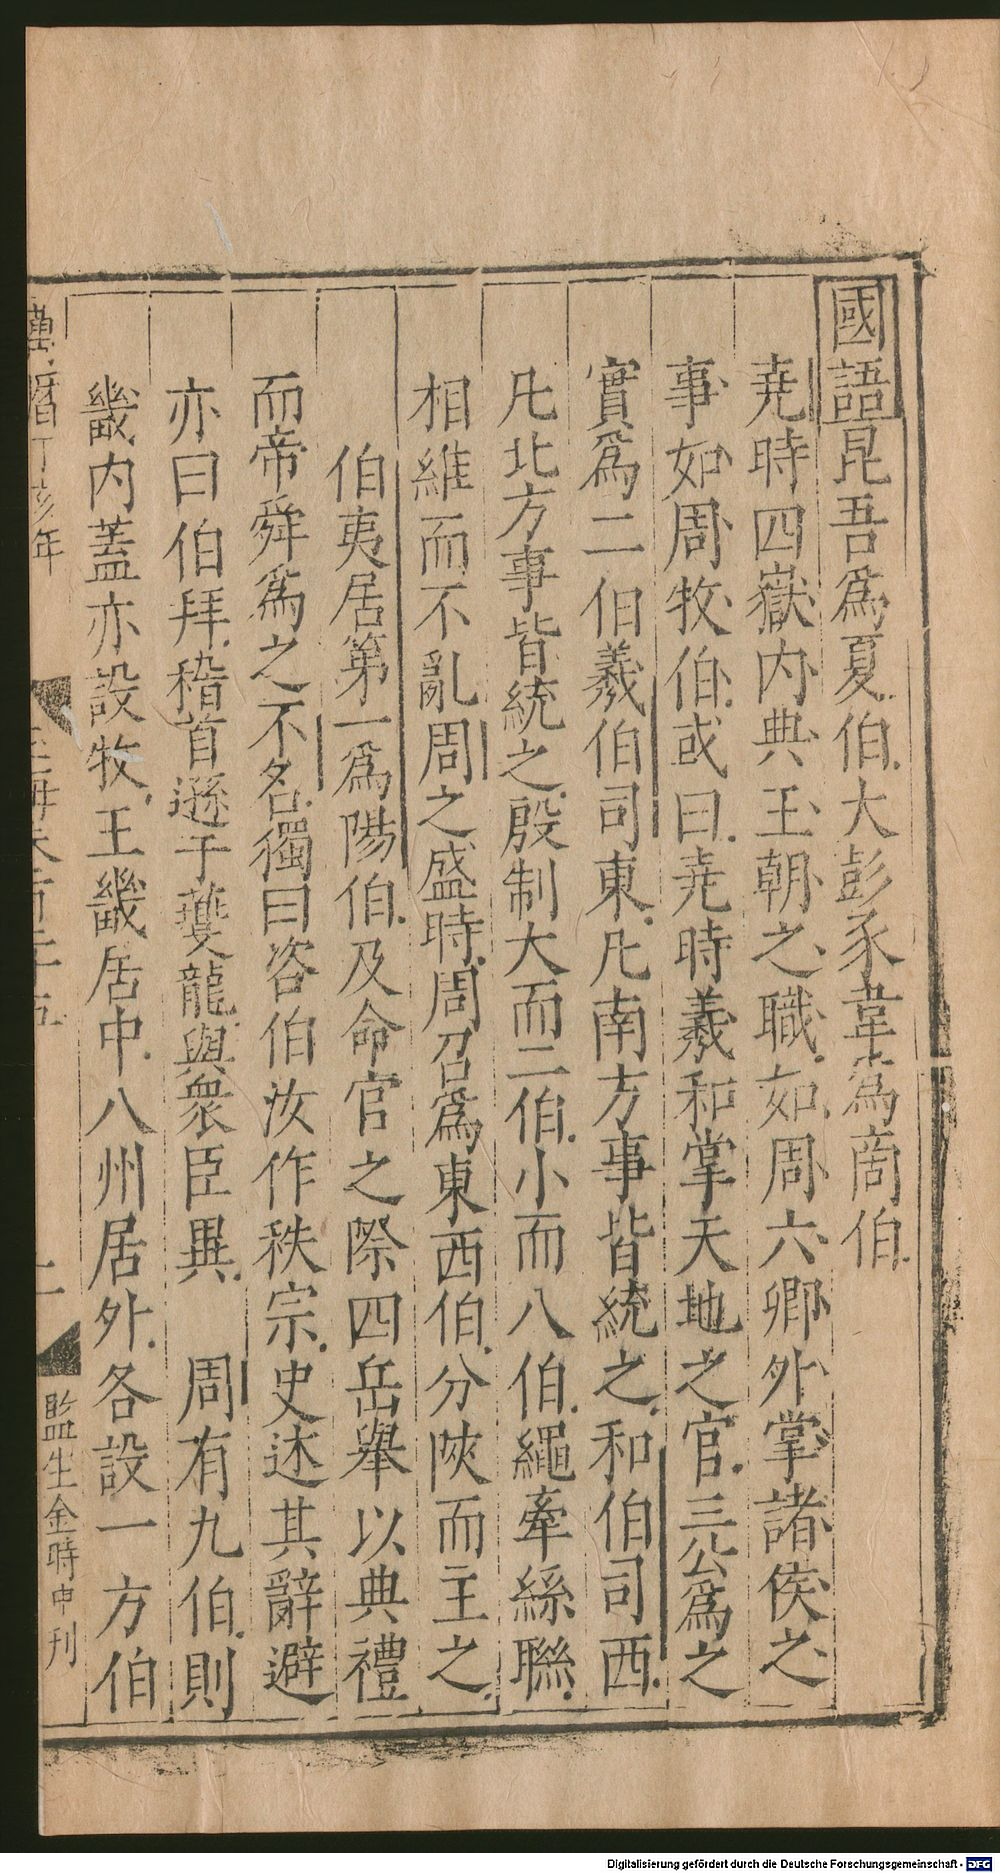 國語昆吾爲夏伯大彭豕韋爲商伯
堯時四嶽内典王朝之職如周六卿外掌諸侯之
事如周牧伯或曰堯時羲和掌天地之官三公爲之
實爲二伯羲伯司東凡南方事皆統之和伯司西
凡北方事皆統之殷制大而二伯小而八伯繩牽絲聯
相維而不亂周之盛時周召爲東西伯分陝而主之
伯夷居第一爲陽伯及命官之際四岳舉以典禮
而帝舜爲之不名獨曰咨伯汝作秩宗史述其辭避
亦曰伯拜稽首遜于夔龍與衆臣異 周有九伯則
畿内蓋亦設牧王畿居中八州居外各設一方伯
萬曆丁亥年
二
監生金時中刊
Digitalisierung gefördert durch die Deutsche Forschungsgemeinschaft - DFG